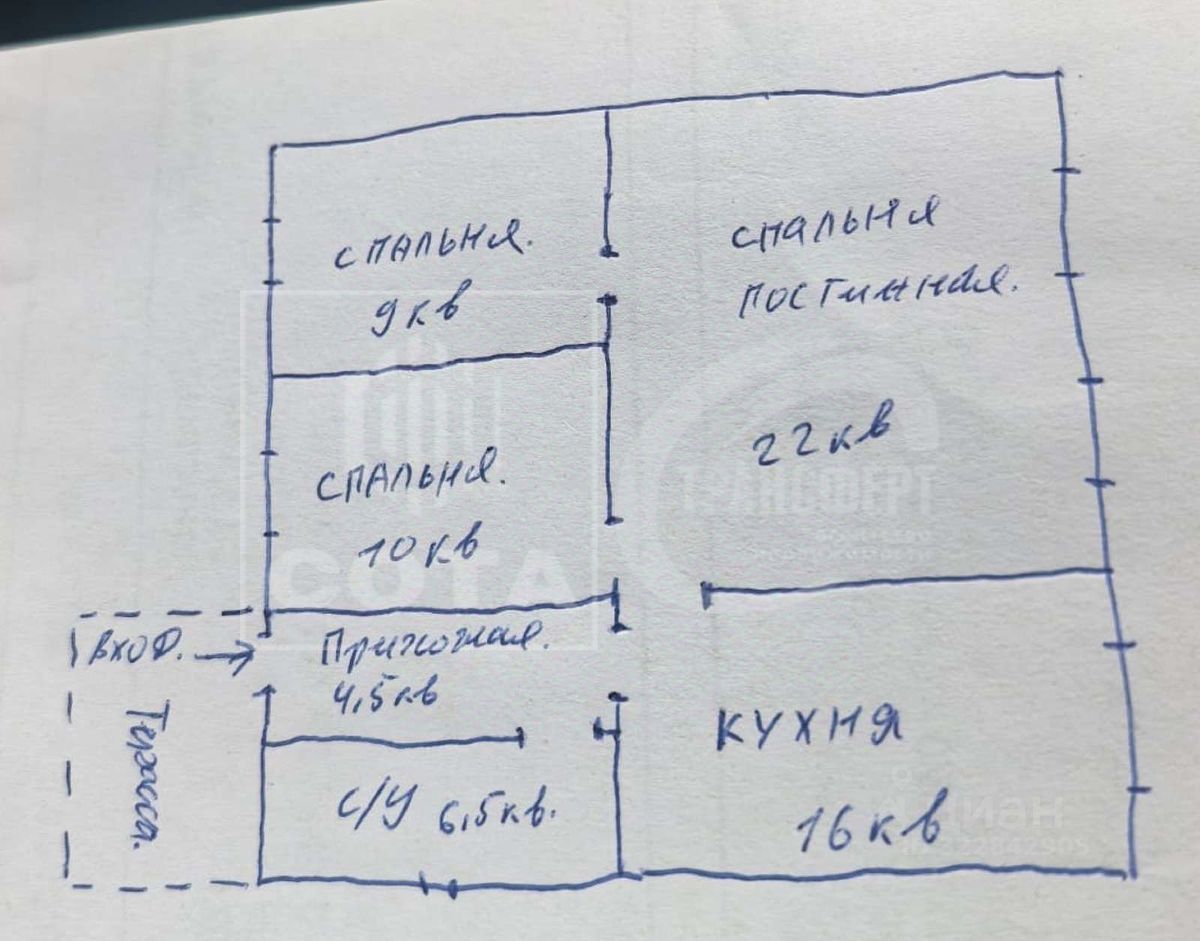 спальня.
9кв
спальня
гостинная.
22кв
спальня.
10кв
вход.
Прихожая.
4,5кв
Терасса.
кухня
16кв
с/у 6,5кв.
СОТА
ТРАНСФЕРТ